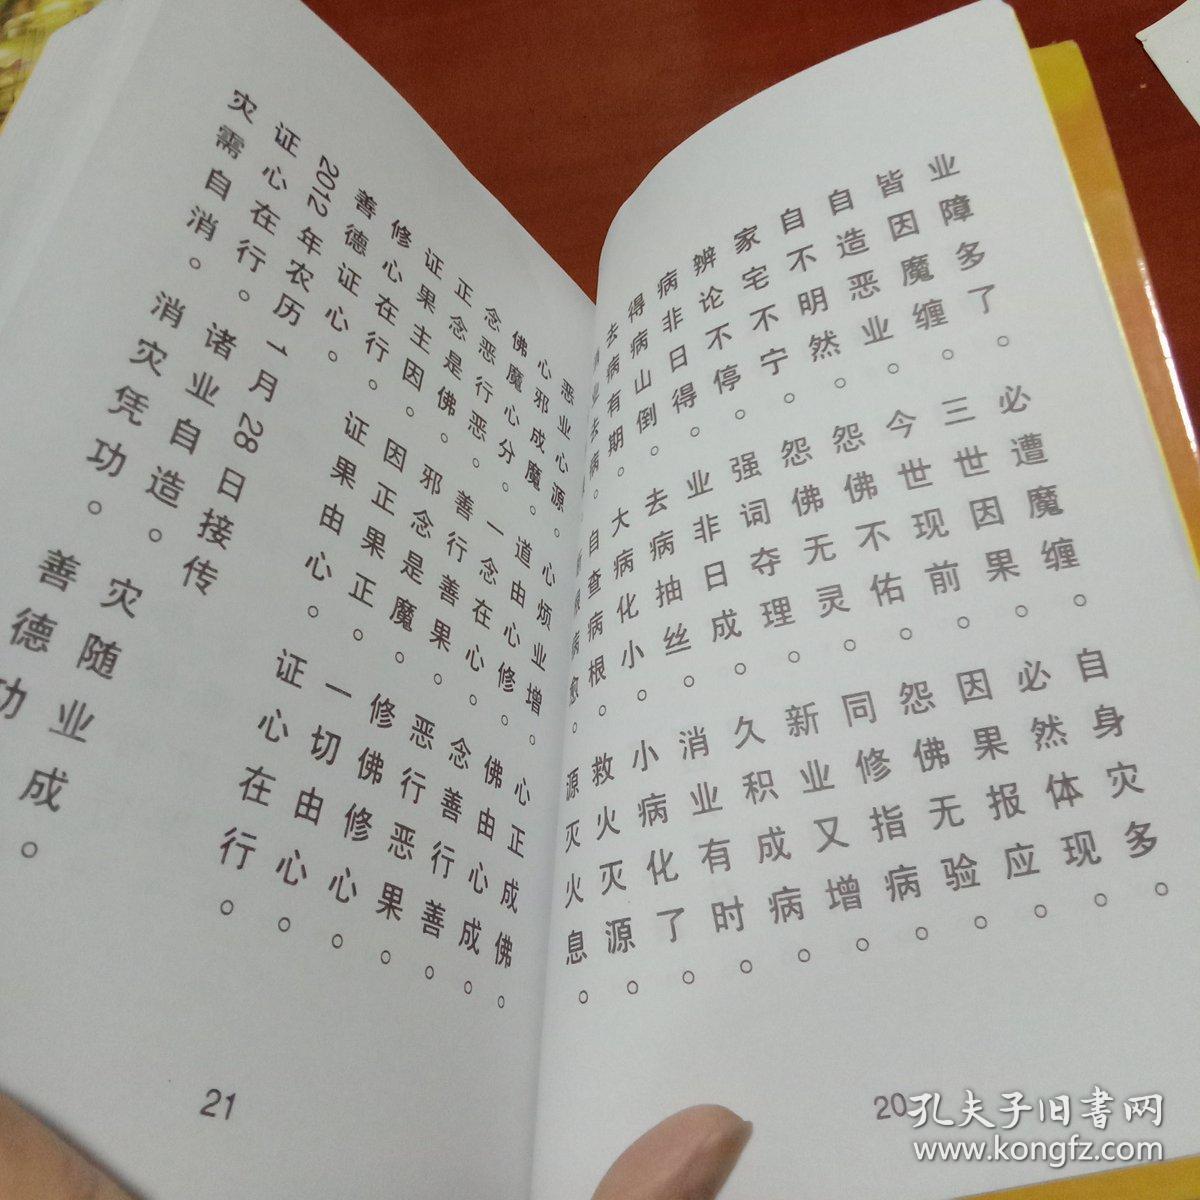 业障多了。必遭魔缠。自身灾多。
皆因魔缠。三世因果。必然体现。
自造恶业。今世现前。因果报应。
自不明然。怨佛不佑。怨佛无验。
家宅不宁。怨佛无灵。同修指病。
辨论不停。强词夺理。新业又增。
病非日得。业非日成。久积成病。
得病山倒。去病抽丝。消业有时。
去病有期。大病化小。小病化了。
业去病。自查病根。救火灭源。
根病愈。源灭火息。
20
恶业心源。心烦业增。心正成佛。
心邪成魔。道由心修。佛由心成。
佛魔心分。一念在心。念善行善。
念恶行恶。善行善果。恶行恶果。
正念是佛。邪念是魔。修佛修心。
证果主因。因正果正。一切由心。
修心在行。证果由心。证心在行。
善德证心。
2012年农历1月28日接传
证心在行。诸业自造。灾随业成。
灾需自消。消灾凭功。善德功
21
孔夫子旧书网
www.kongfz.com